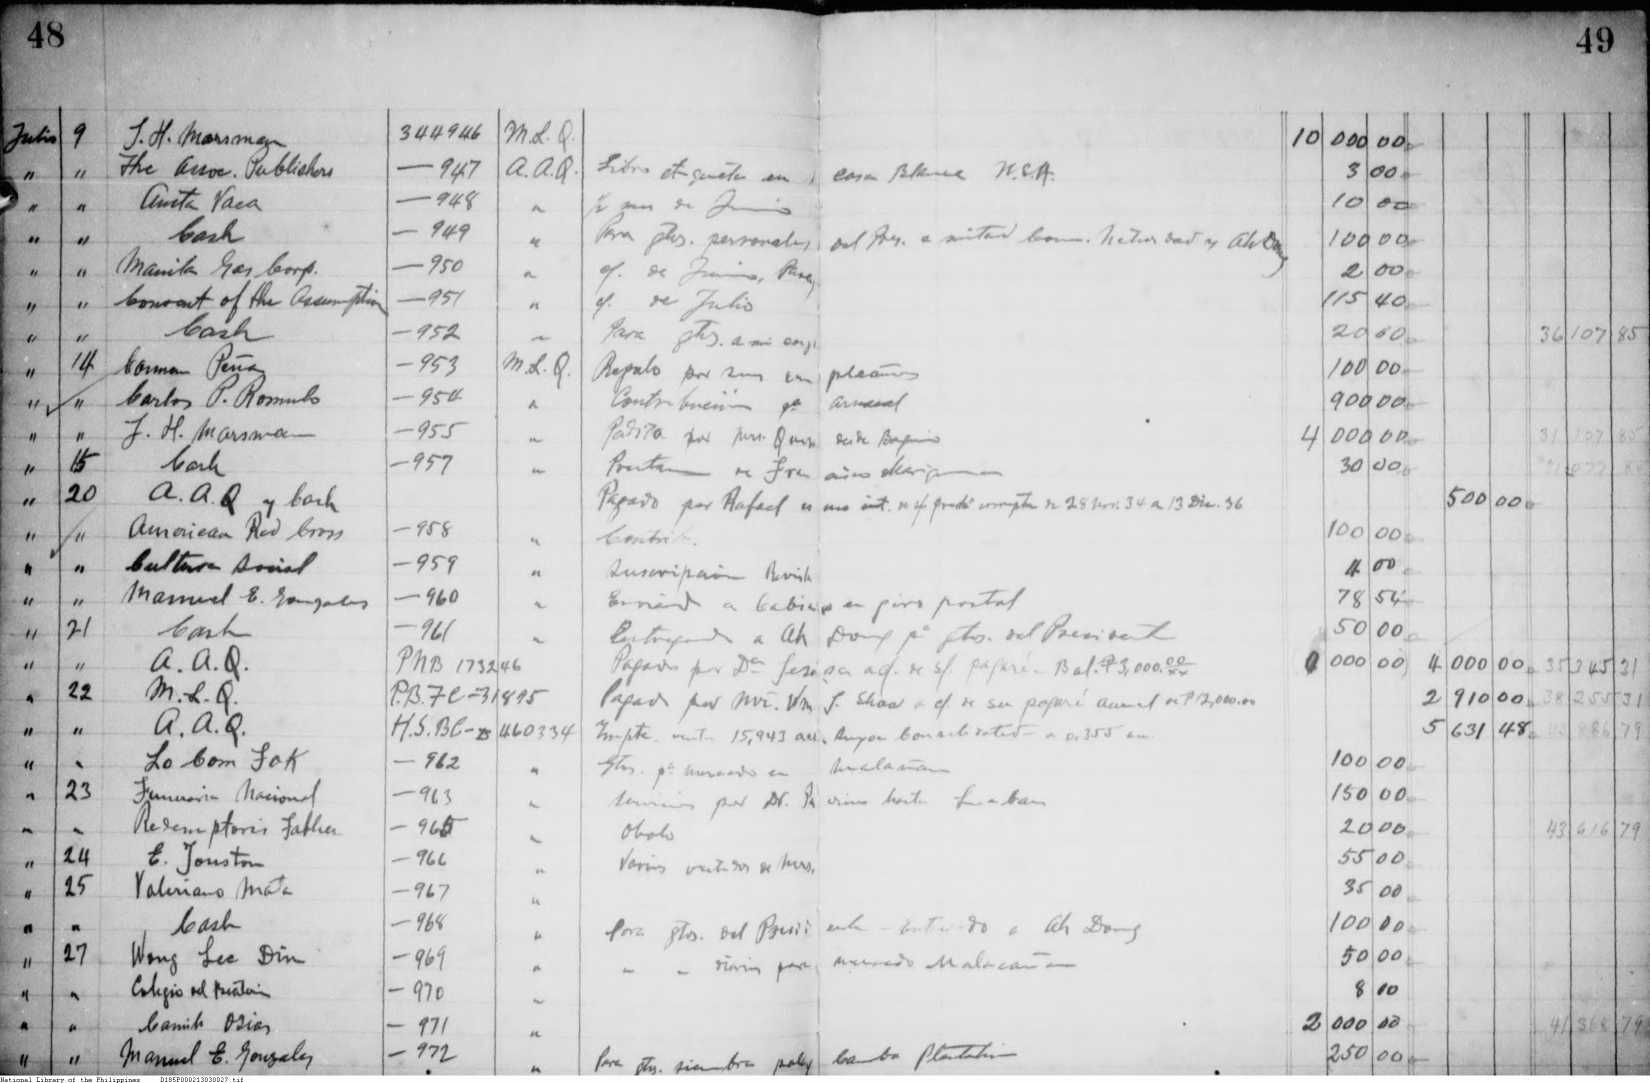 48
49
Julio 9 J. H. Marsman 344946 M.L.Q. 10 000 00
" " The Assoc. Publishers — 947 A.A.Q. Libro etiqueta en casa Blanca 3 00
" " Anita Vaca — 948 " mes de Junio 10 00
" " Cash — 949 " Para gtos. personales del Pres. a mitad 100 00
" " Manila Gas Corp. — 950 " cf. de Junio, 2 00
" " Convent of the Assumption — 951 " cf. de Julio 115 40
" " Cash — 952 " Para gtos. a mi 20 00 36 107 85
" 14 Carmen Peña — 953 M.L.Q. Regalo por sus cumpleaños 100 00
" " Carlos P. Romulo — 954 " Contribución pa 900 00
" " J. H. Marsman — 955 " por Mrs. Quezon desde Baguio 4 000 00 31 107 85
" 15 Cash — 957 " 30 00
" 20 A.A.Q y Cash Pagado por Rafael 28 Nov. 34 a 13 Dic. 36 500 00
" " American Red Cross — 958 " Contrib. 100 00
" " Cultura Social — 959 " Suscripción Revista 4 00
" " Manuel E. Gonzales — 960 " Enviado a en giro postal 78 54
" 21 Cash — 961 " Entregado a Ah Dong pa gtos. del Presidente 50 00
" " A.A.Q. PNB 173246 Pagado por Da a cf. de s/. pagaré - Bal. ₱3,000.00 000 00 4 000 00 35 345 31
" 22 M.L.Q. P.B. 7C -31895 Pagado por Mr. Wm. J. Shaw a cf. de su pagaré ₱12,000.00 2 910 00 38 255 31
" " A.A.Q. H.S.BC- 460334 Impte. venta 15,943 acc. Consolidated a 0.355 5 631 48 43 886 79
" " Lo Com Fok — 962 " Gtos. pa mercado en Malacañan 100 00
" 23 Funeraria Nacional — 963 " Servicios por Dr. 150 00
" " Redemptoris Father — 965 " Obolo 20 00 43 616 79
" 24 E. Jouston — 966 " Varios vestidos de Mrs. 55 00
" 25 Valeriano Mata — 967 " 35 00
" " Cash — 968 " Para gtos. del Presidente a Ah Dong 100 00
" 27 Wong Lee Din — 969 " " " diarios para mercado Malacañan 50 00
" " Colegio del — 970 " 8 00
" " Camilo Osias — 971 " 2 000 00 41 368 79
" " Manuel E. Gonzales — 972 " Para gtos. siembra Plantation 250 00
National Library of the Philippines D185P000213030027.tif